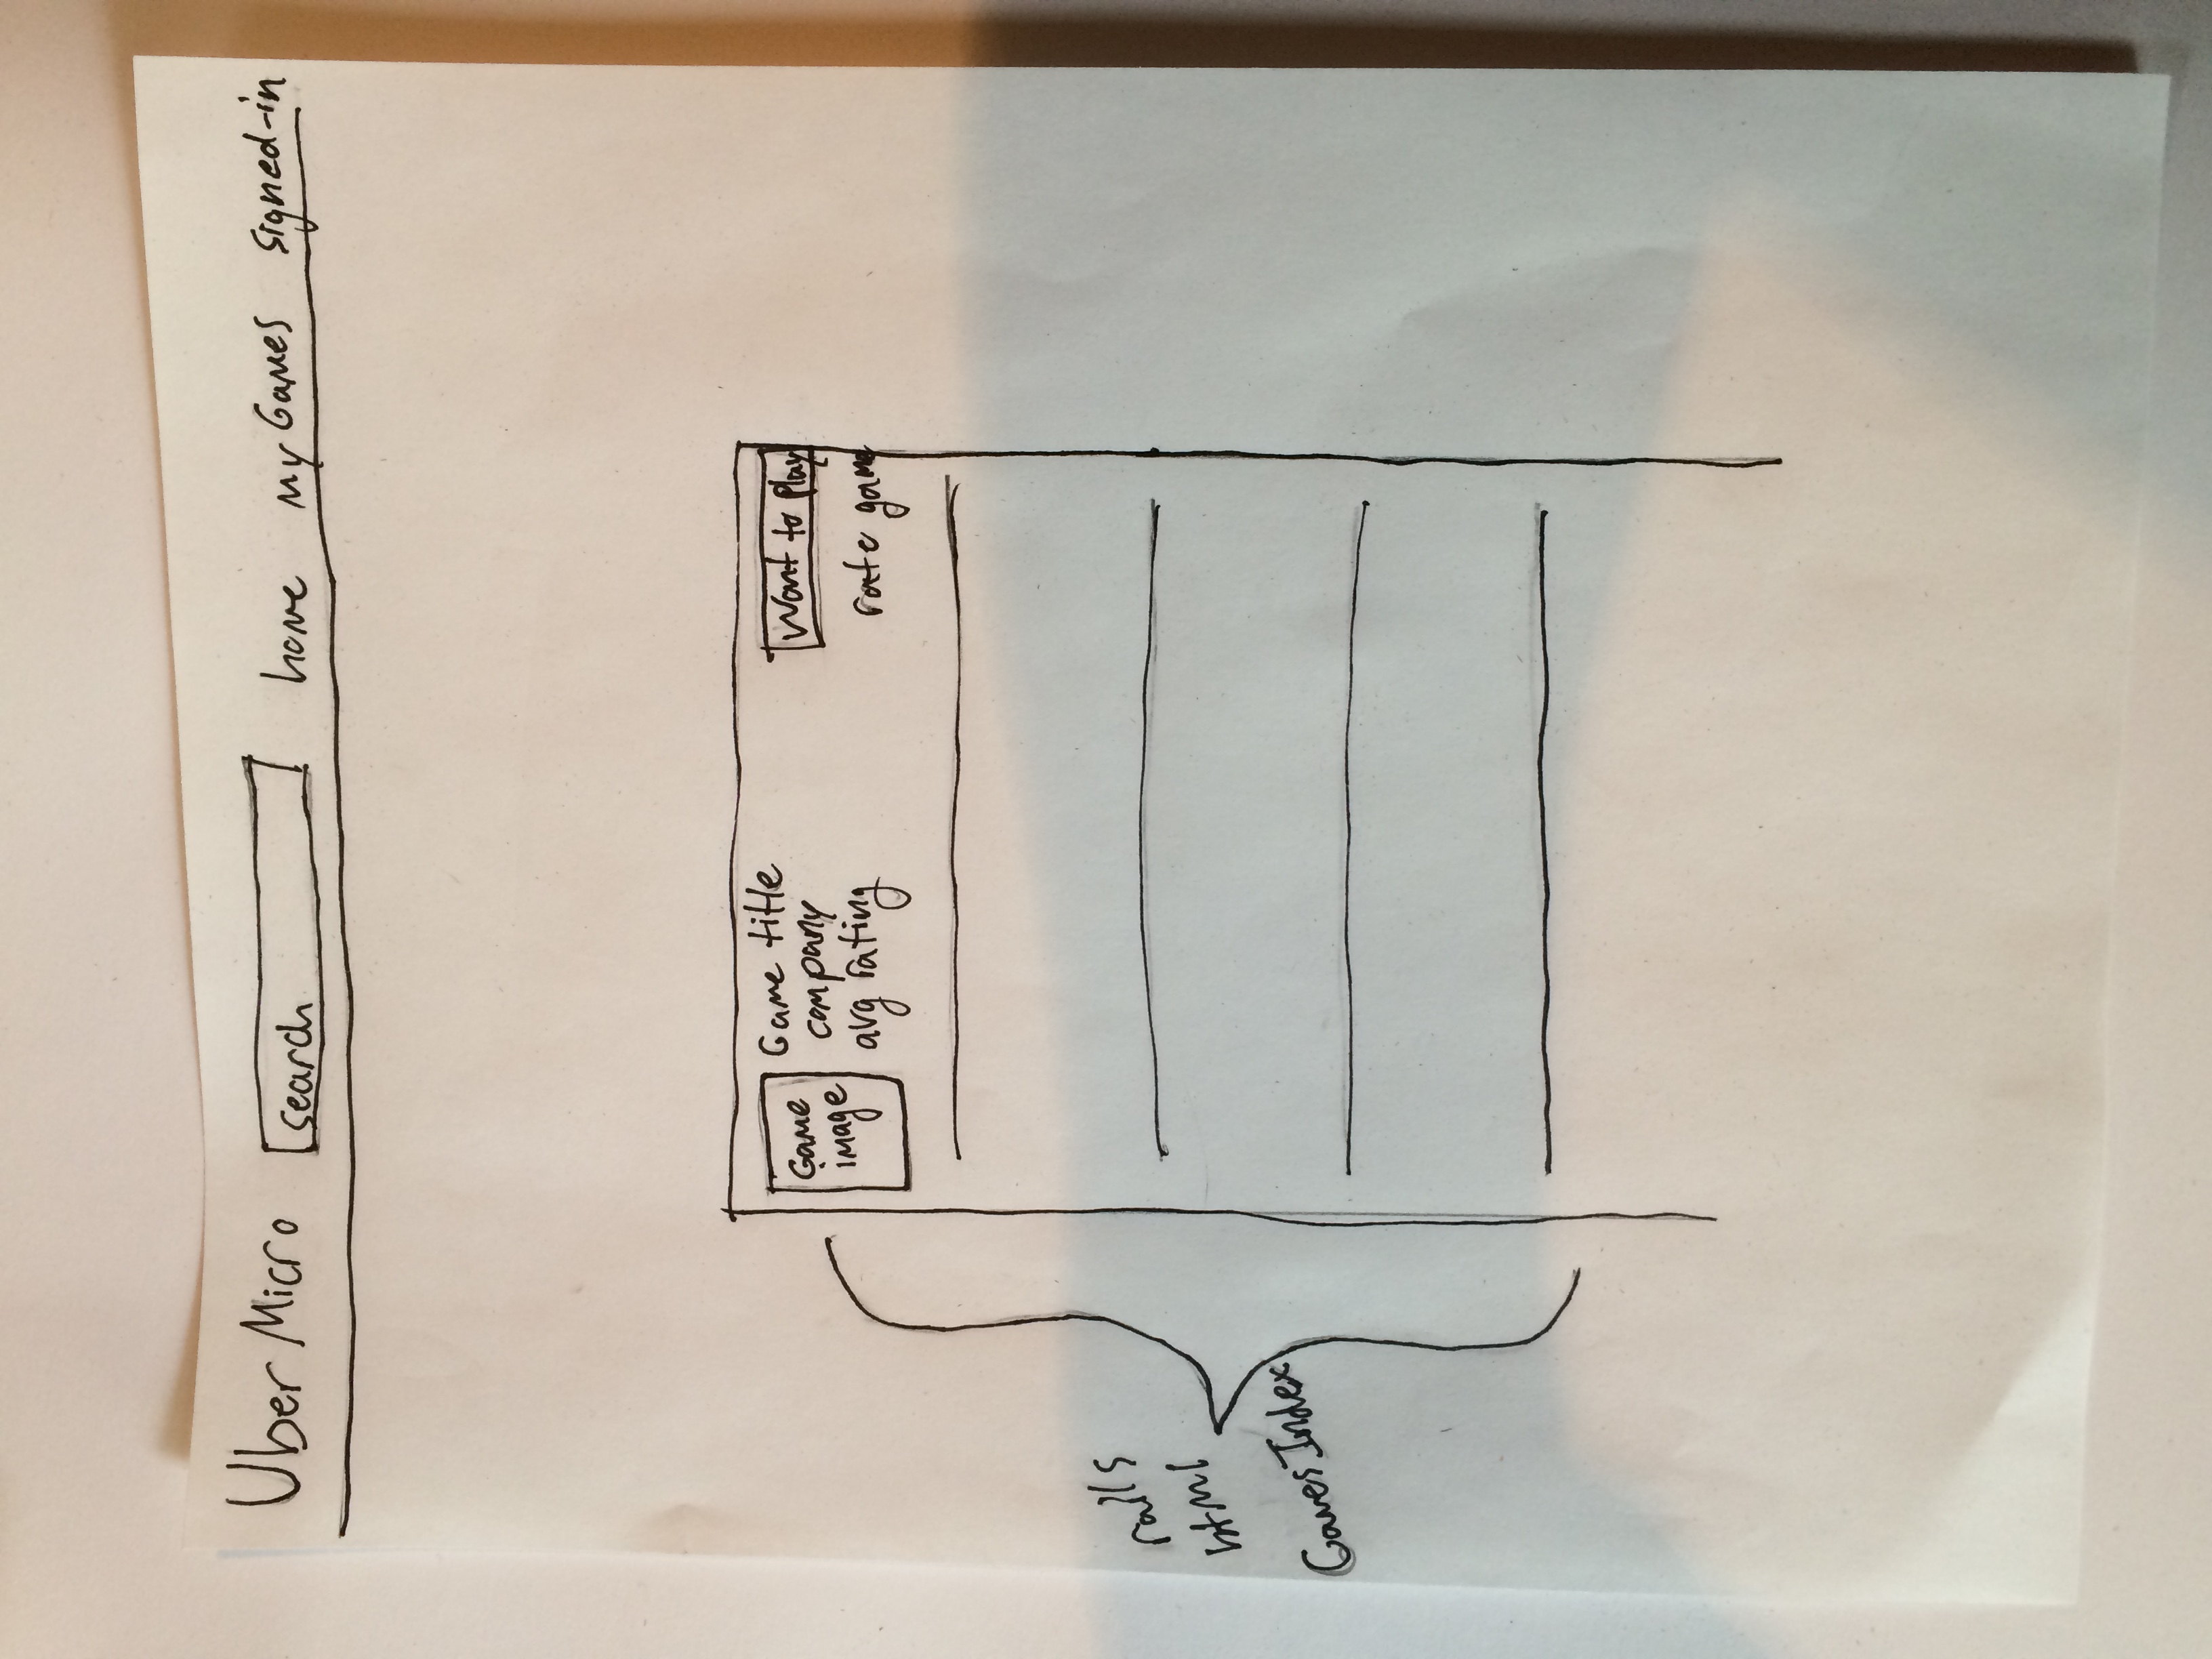 Uber Micro
search
home my Games signed-in
Game image
Game title
company
avg rating
Want to play
rate game
rails
html
GamesIndex